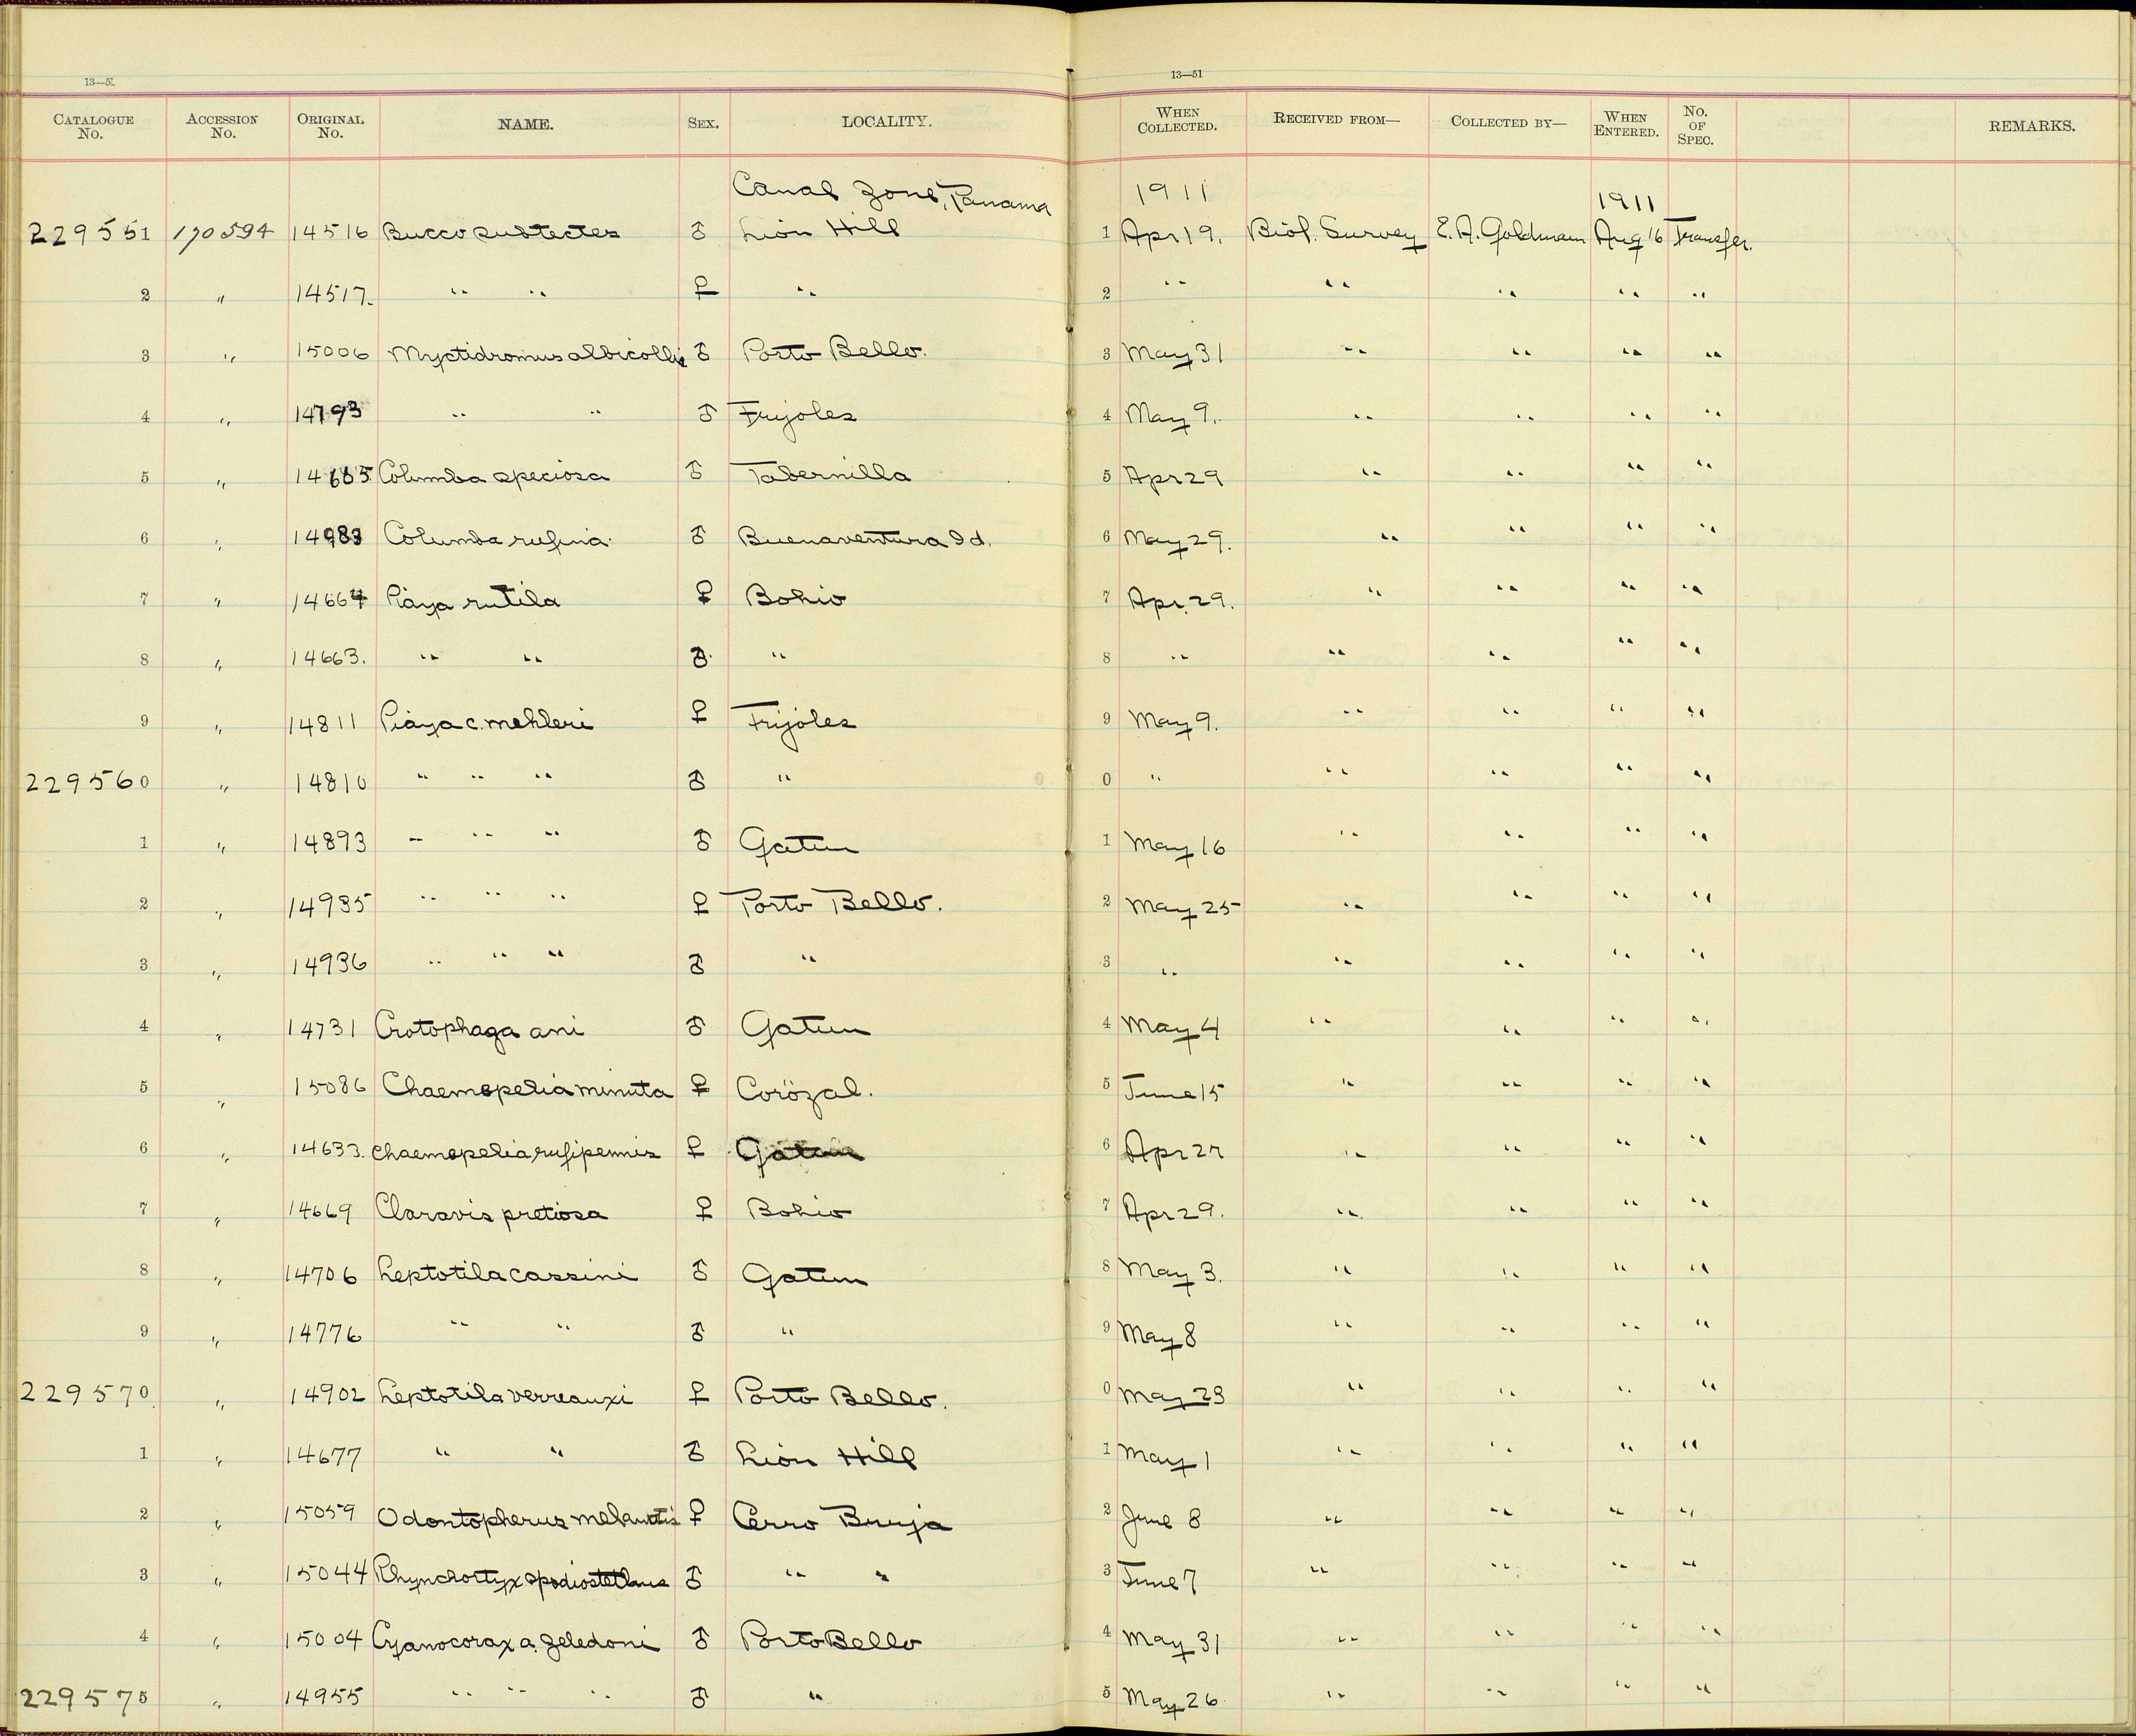 13—51
CATALOGUE No. ACCESSION No. ORIGINAL No. NAME. SEX. LOCALITY. WHEN COLLECTED. RECEIVED FROM— COLLECTED BY— WHEN ENTERED. No. OF SPEC. REMARKS.
Canal Zone, Panama 1911 1911
229551 170594 14516 Bucco subtectes ♂ Lion Hill 1 Apr 19. Biol. Survey E. A. Goldman Aug 16 Transfer.
2 " 14517. " " ♀ " 2 " " " " "
3 " 15006 Myctidromus albicollis ♂ Porto Bello. 3 May 31 " " " "
4 " 14793 " " ♂ Frijoles 4 May 9. " " " "
5 " 14685 Columba speciosa ♂ Tabernilla 5 Apr 29 " " " "
6 " 14983 Columba rufina. ♂ Buenaventura Id. 6 May 29. " " " "
7 " 14664 Piaya rutila ♀ Bohio 7 Apr. 29. " " " "
8 " 14663. " " ♂. " 8 " " " " "
9 " 14811 Piaya c. mehleri ♀ Frijoles 9 May 9. " " " "
229560 " 14810 " " " ♂ " 0 " " " " "
1 " 14893 " " " ♂ Gatun 1 May 16 " " " "
2 " 14935 " " " ♀ Porto Bello. 2 May 25 " " " "
3 " 14936 " " " ♂ " 3 " " " " "
4 " 14731 Crotophaga ani ♂ Gatun 4 May 4 " " " "
5 " 15086 Chaemepelia minuta ♀ Corozal. 5 June 15 " " " "
6 " 14633. Chaemepelia rufipennis ♀ Gatun 6 Apr 27 " " " "
7 " 14669 Claravis pretiosa ♀ Bohio 7 Apr 29. " " " "
8 " 14706 Leptotila cassini ♂ Gatun 8 May 3. " " " "
9 " 14776 " " ♂ " 9 May 8 " " " "
229570 " 14902 Leptotila verreauxi ♀ Porto Bello. 0 May 23 " " " "
1 " 14677 " " ♂ Lion Hill 1 May 1 " " " "
2 " 15059 Odontopherus melanotis ♀ Cerro Bruja 2 June 8 " " " "
3 " 15044 Rhynchortyx spodiostethus ♂ " " 3 June 7 " " " "
4 " 15004 Cyanocorax a. zeledoni ♂ Porto Bello 4 May 31 " " " "
229575 " 14955 " " " ♂ " 5 May 26 " " " "